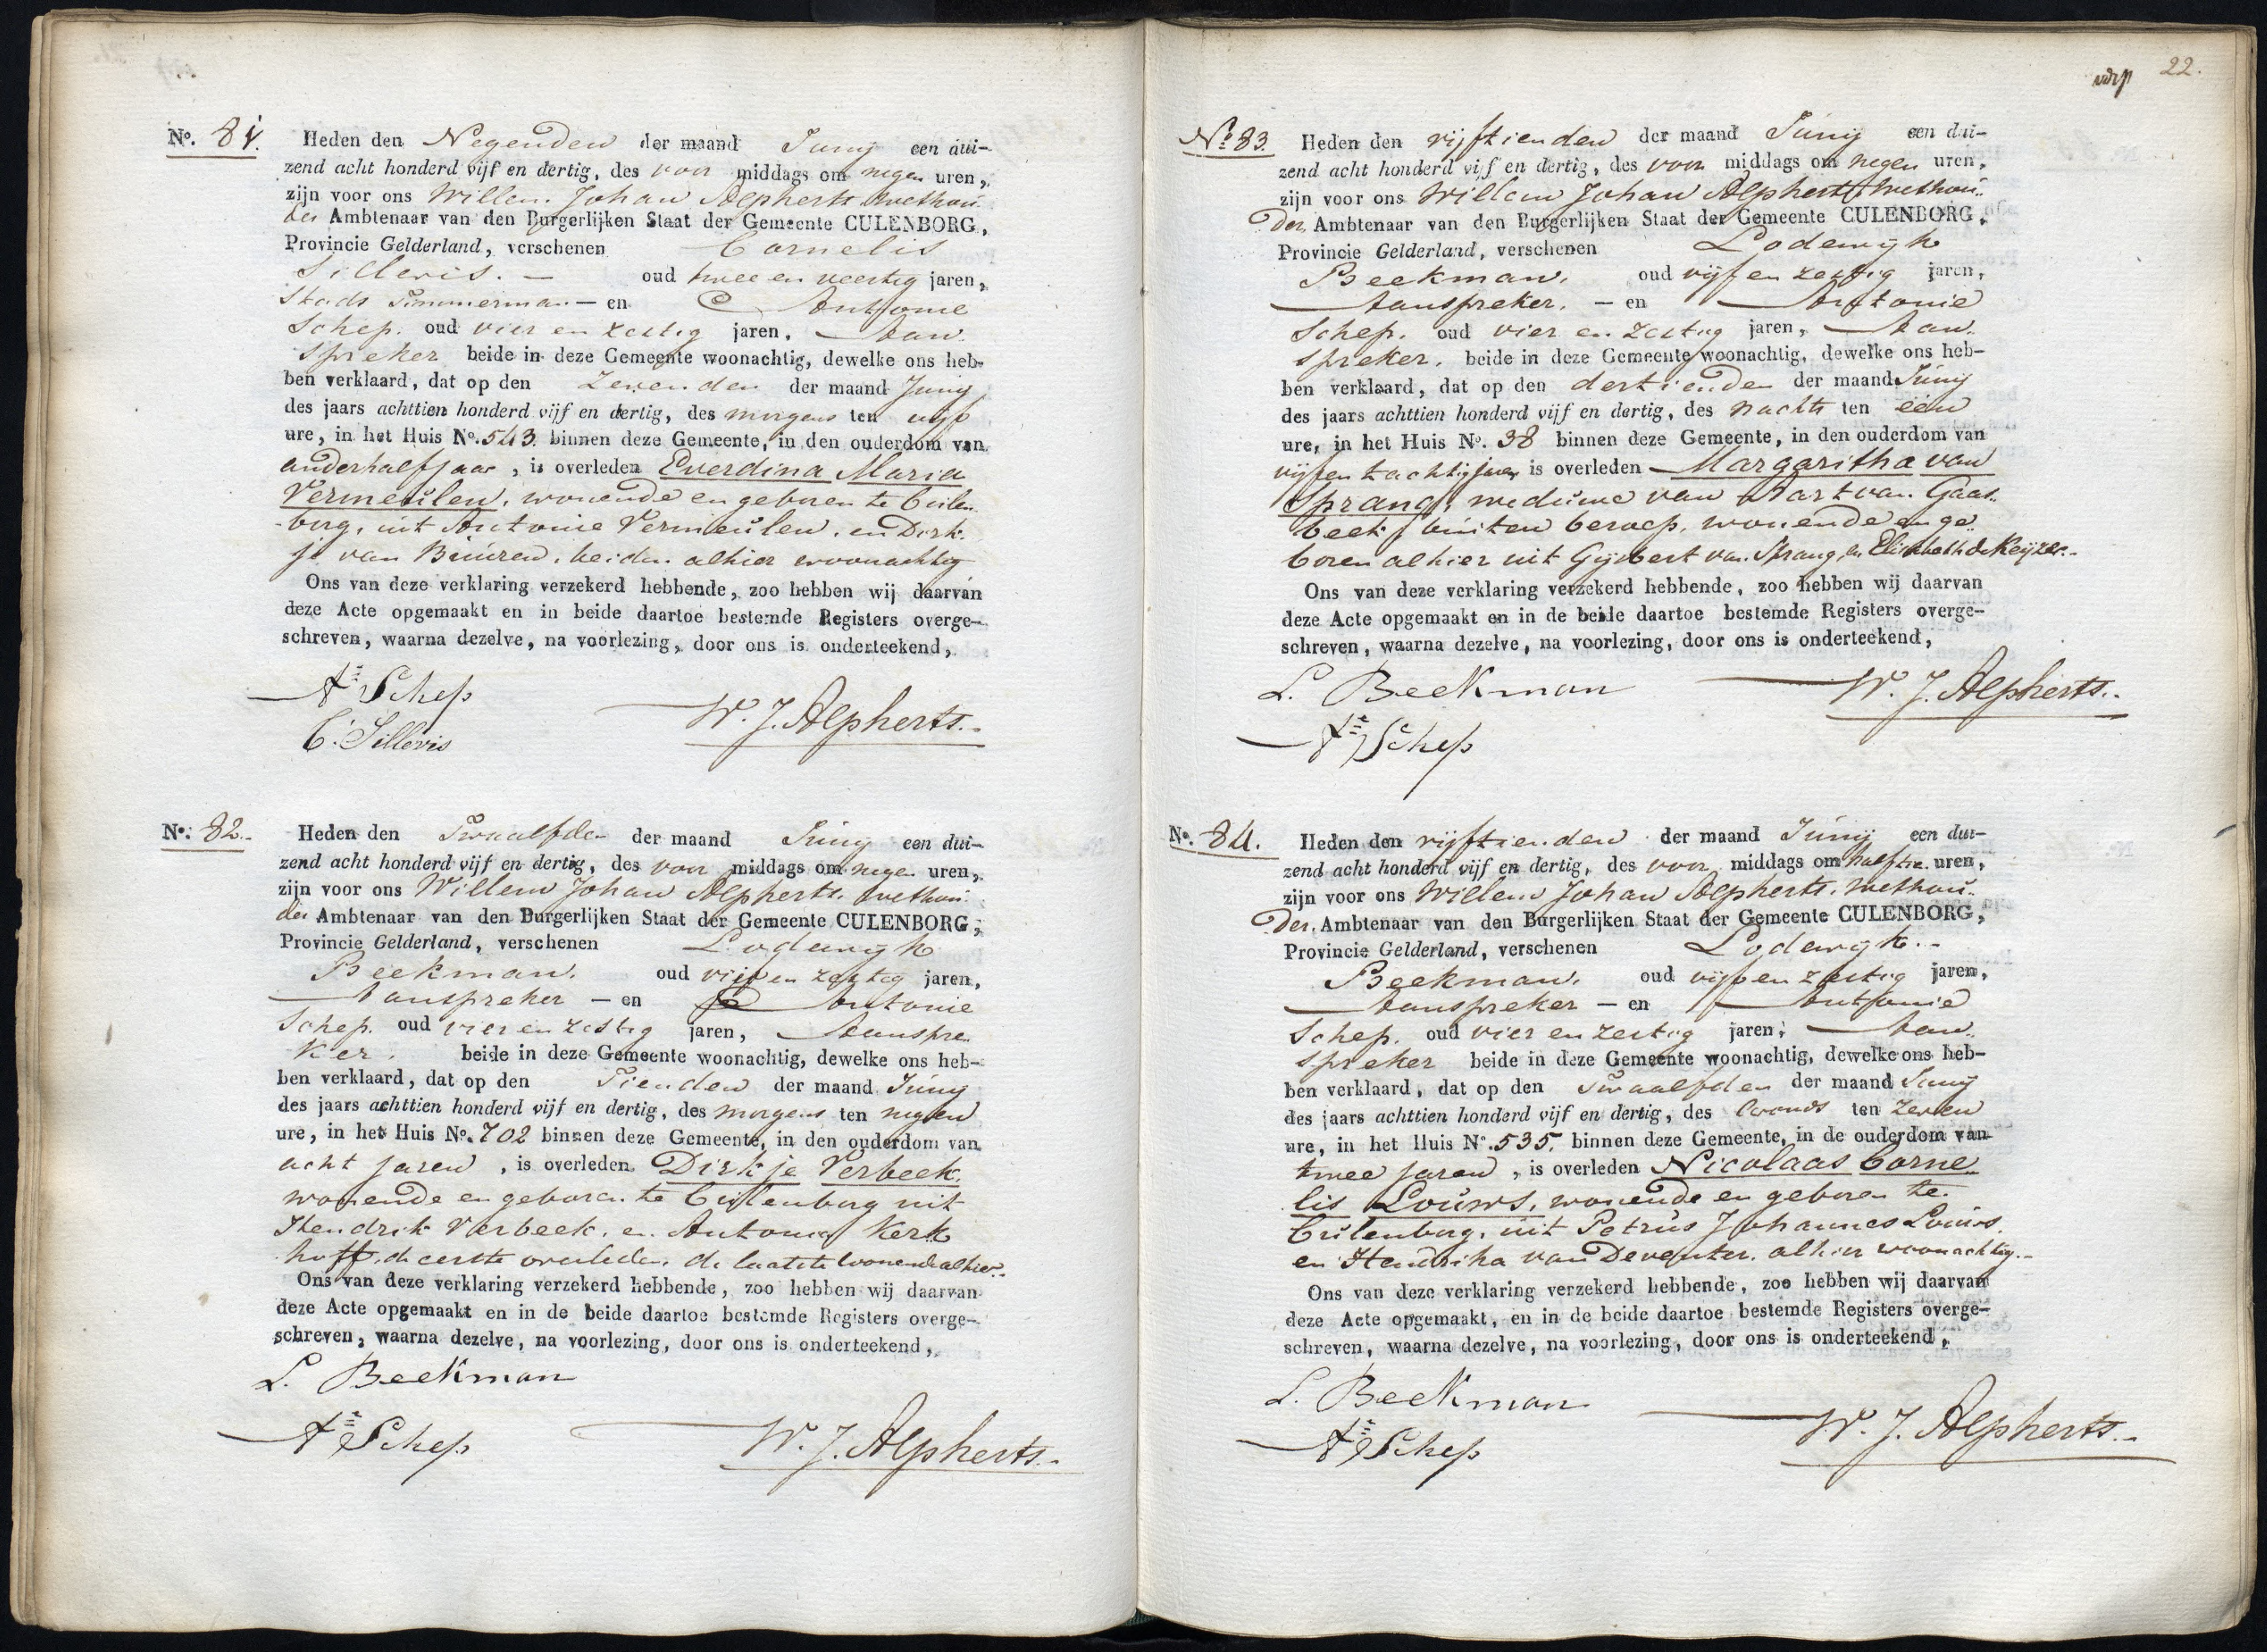 No. 81. Heden den Negenden der maand Junij een dui-
zend acht honderd vijf en dertig, des voor middags om negen uren,
zijn voor ons Willem Johan Alpherts. Wethou-
der Ambtenaar van den Burgerlijken Staat der Gemeente CULENBORG,
Provincie Gelderland, verschenen Cornelis
Sillevis. — oud twee en veertig jaren,
Stads Timmerman — en Antonie
Schep. oud vier en zestig jaren, Aan-
spreker beide in deze Gemeente woonachtig, dewelke ons heb-
ben verklaard, dat op den Zevenden der maand Junij
des jaars achttien honderd vijf en dertig, des morgens ten vijf
ure, in het Huis No. 543. binnen deze Gemeente, in den ouderdom van
anderhalf jaar, is overleden Everdina Maria
Vermeulen, wonende en geboren te Culen-
borg, uit Antonie Vermeulen, en Dirk-
je van Buuren, beiden alhier woonachtig
Ons van deze verklaring verzekerd hebbende, zoo hebben wij daarvan
deze Acte opgemaakt en in beide daartoe bestemde Registers overge-
schreven, waarna dezelve, na voorlezing, door ons is onderteekend,
A Schep
C. Sillevis
W. J. Alpherts.
No. 82. Heden den Twaalfden der maand Junij een dui-
zend acht honderd vijf en dertig, des voor middags om negen uren,
zijn voor ons Willem Johan Alpherts. Wethou-
der Ambtenaar van den Burgerlijken Staat der Gemeente CULENBORG,
Provincie Gelderland, verschenen Lodewijk
Beekman. oud vijf en zestig jaren,
Aanspreker — en Antonie
Schep. oud vier en zestig jaren, Aanspre-
ker. beide in deze Gemeente woonachtig, dewelke ons heb-
ben verklaard, dat op den Tienden der maand Junij
des jaars achttien honderd vijf en dertig, des morgens ten negen
ure, in het Huis No. 702 binnen deze Gemeente, in den ouderdom van
acht jaren, is overleden Dirkje Verbeek.
wonende en geboren te Culenborg uit
Hendrik Verbeek. en Antonia Kerk
hoff, de eerste overleden, de laatste wonende alhier.
Ons van deze verklaring verzekerd hebbende, zoo hebben wij daarvan
deze Acte opgemaakt en in de beide daartoe bestemde Registers overge-
schreven, waarna dezelve, na voorlezing, door ons is onderteekend,
L. Beekman
A Schep
W. J. Alpherts.
22.
No. 83. Heden den vijftienden der maand Junij een dui-
zend acht honderd vijf en dertig, des voor middags om negen uren,
zijn voor ons Willem Johan Alpherts Wethou-
der, Ambtenaar van den Burgerlijken Staat der Gemeente CULENBORG,
Provincie Gelderland, verschenen Lodewijk
Beekman. oud vijf en zestig jaren,
Aanspreker. — en Antonie
Schep. oud vier en zestig jaren, Aan-
spreker. beide in deze Gemeente woonachtig, dewelke ons heb-
ben verklaard, dat op den dertienden der maand Junij
des jaars achttien honderd vijf en dertig, des nachts ten één
ure, in het Huis No. 38 binnen deze Gemeente, in den ouderdom van
vijf en tachtig jaren is overleden Margaritha van
Sprang, weduwe van Aart van Gaas-
beek, buiten beroep, wonende en ge-
boren alhier uit Gijsbert van Sprang en Elisabeth de Keijzer.
Ons van deze verklaring verzekerd hebbende, zoo hebben wij daarvan
deze Acte opgemaakt en in de beide daartoe bestemde Registers overge-
schreven, waarna dezelve, na voorlezing, door ons is onderteekend,
L. Beekman
A Schep
W. J. Alpherts.
No. 84. Heden den vijftienden der maand Junij een dui-
zend acht honderd vijf en dertig, des voor middags om half tien uren,
zijn voor ons Willem Johan Alpherts. Wethou-
der. Ambtenaar van den Burgerlijken Staat der Gemeente CULENBORG,
Provincie Gelderland, verschenen Lodewijk.
Beekman. oud vijf en zestig jaren,
Aanspreker — en Antonie
Schep. oud vier en zestig jaren, Aan-
spreker beide in deze Gemeente woonachtig, dewelke ons heb-
ben verklaard, dat op den Twaalfden der maand Junij
des jaars achttien honderd vijf en dertig, des avonds ten zeven
ure, in het Huis No. 535. binnen deze Gemeente, in de ouderdom van
twee jaren, is overleden Nicolaas Corne-
lis Louws, wonende en geboren te
Culenborg, uit Petrus Johannes Louws,
en Hendrika van Deventer. alhier woonachtig.
Ons van deze verklaring verzekerd hebbende, zoo hebben wij daarvan
deze Acte opgemaakt, en in de beide daartoe bestemde Registers overge-
schreven, waarna dezelve, na voorlezing, door ons is onderteekend,
L. Beekman
A Schep
W. J. Alpherts.